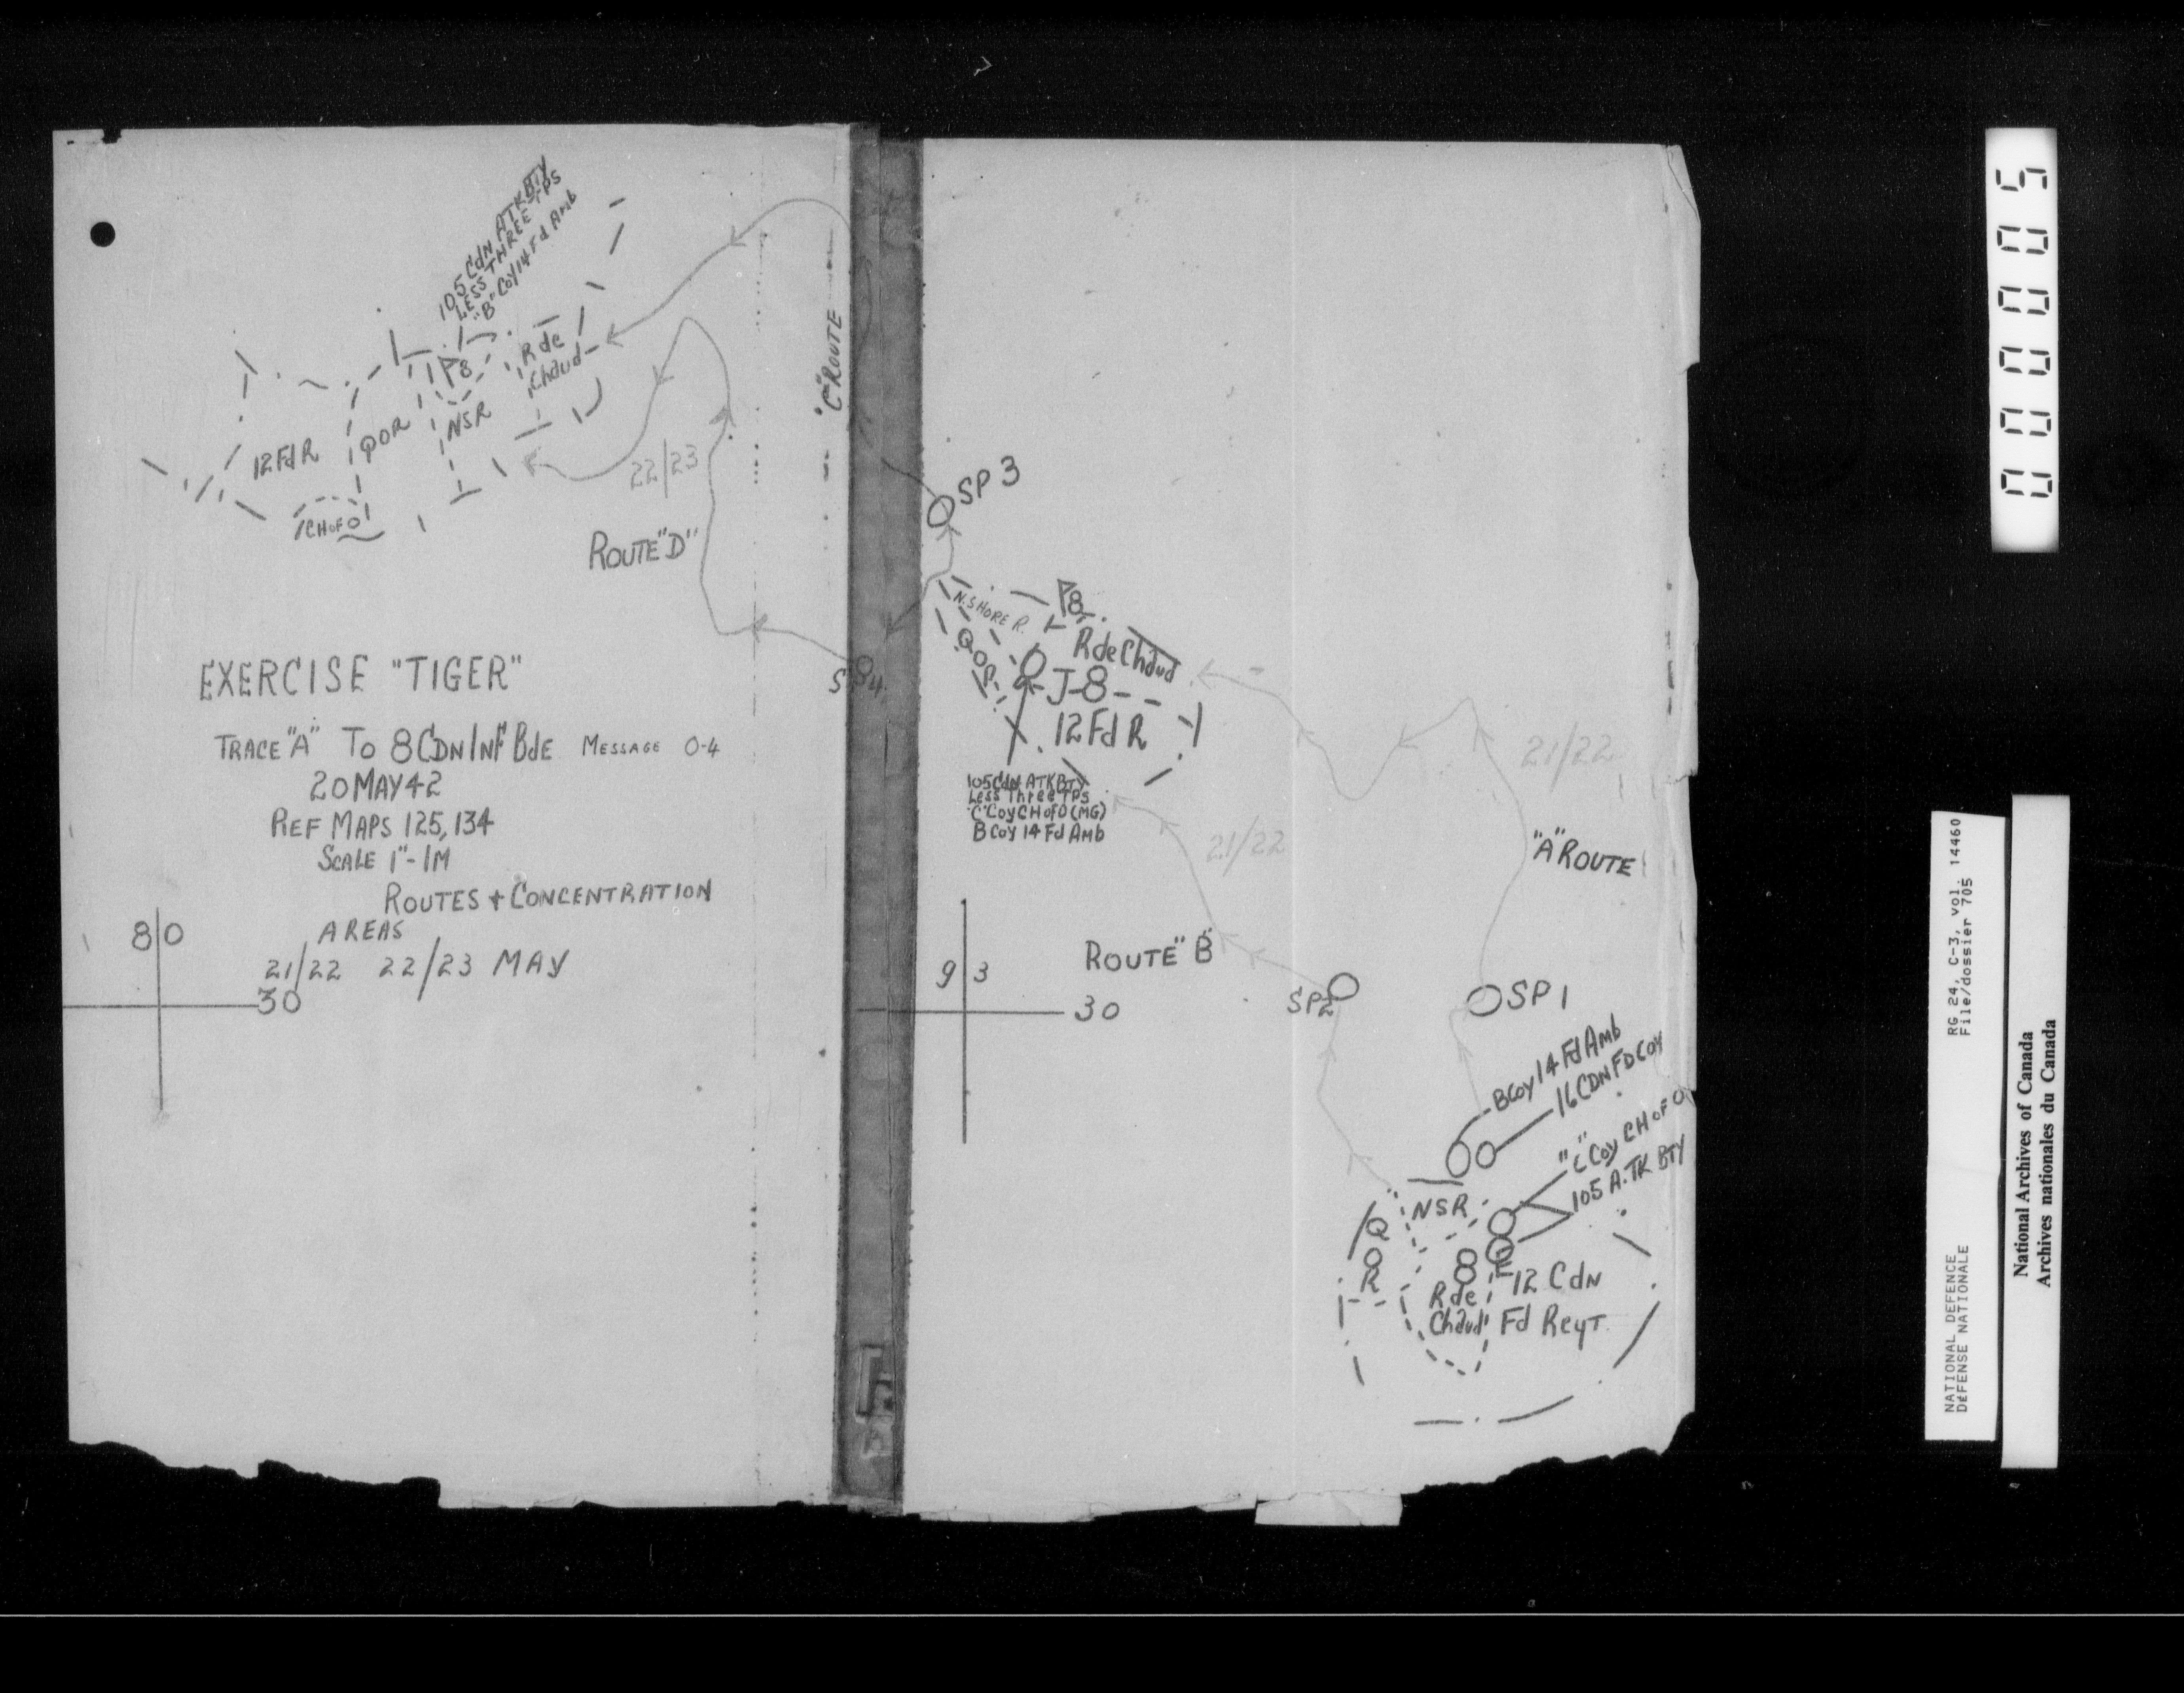 105 CdN ATKBTY
LESS THREE TPS
"B" Coy 14 Fd Amb
P8
R de
Chaud
NSR
QOR
12 Fd R
CH of O
22/23
ROUTE "D"
"C" ROUTE
SP 3
SP4
EXERCISE "TIGER"
TRACE "A" TO 8 CDN INF BdE MESSAGE O-4
20 MAY 42
REF MAPS 125, 134
SCALE 1"-1M
ROUTES + CONCENTRATION
AREAS
21/22 22/23 MAY
80
30
N. SHORE R.
P8
R de Chaud
J-8
12 Fd R
105 Cdn ATKBTY
Less Three TPS
"C" Coy CH of O (MG)
B Coy 14 Fd Amb
21/22
21/22
"A" ROUTE
ROUTE "B"
93
30
SP2
SP 1
B Coy 14 Fd Amb
16 CDN FD COY
"C" Coy CH of O
105 A.TK BTY
NSR
QOR
8
R de
Chaud
12 Cdn
Fd Regt.
00005
RG 24, C-3, vol. 14460
File/dossier 705
NATIONAL DEFENCE
DÉFENSE NATIONALE
National Archives of Canada
Archives nationales du Canada